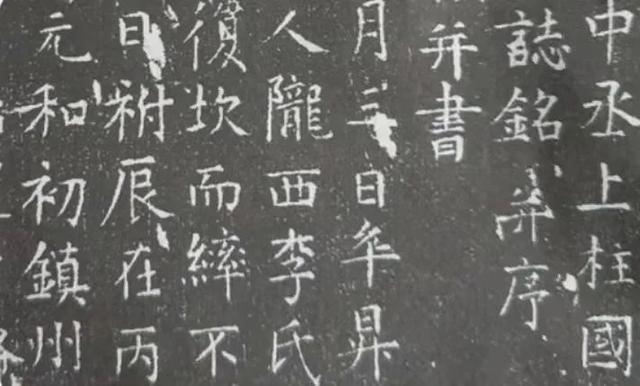 中丞上柱國
誌銘并序
并書
月三日昇
人隴西李氏
復坎而不
日祔辰在丙
元和初鎮州